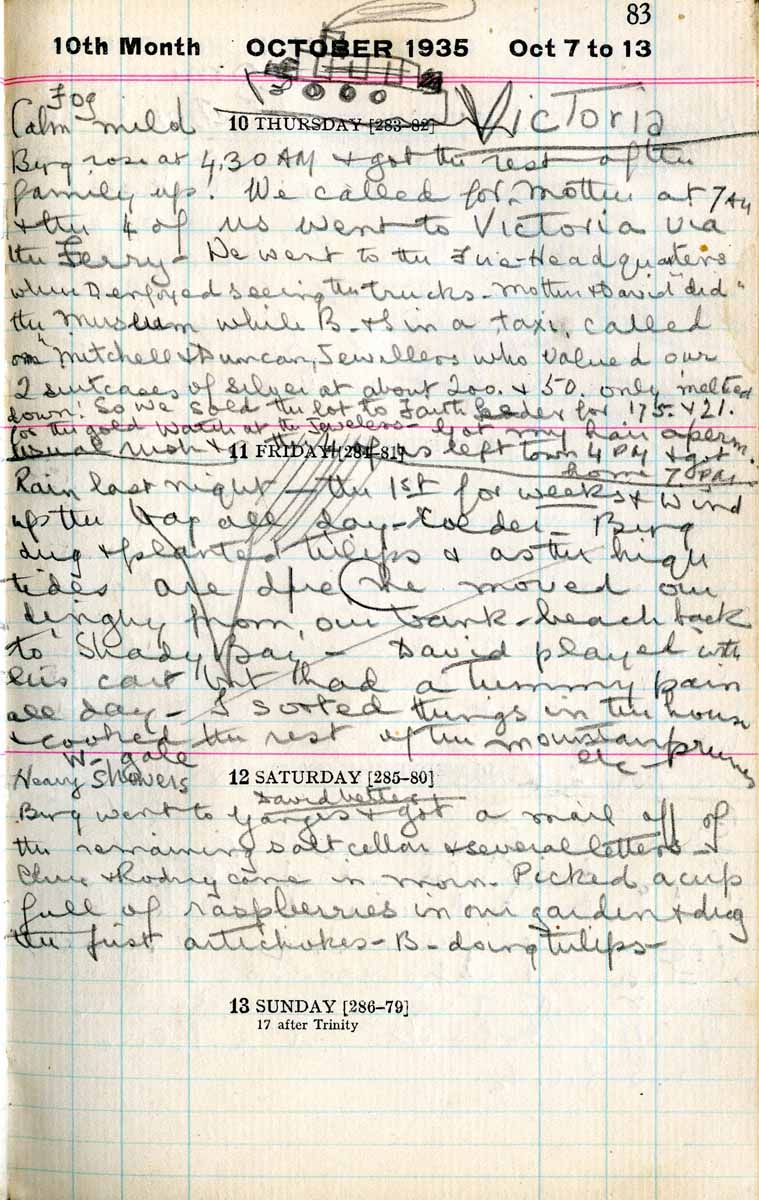 83
10th Month OCTOBER 1935 Oct 7 to 13
Fog
Calm mild 10 THURSDAY [283-82] Victoria
Berg rose at 4.30 AM & got the rest of the
family up! We called for Mother at 7 AM
& the 4 of us went to Victoria via
the Ferry - We went to the Fire-Headquarters
where D enjoyed seeing the trucks - Mother & David "did"
the Museum while B. & I in a taxi, called
on Mitchell & Duncan, Jewellers who valued our
2 suitcases of silver at about 200. & 50. only melted
down! So we sold the lot to for 175. & 21.
for the gold Watch at the Jewelers - Got my hair a perm.
usual rush & left town 4 PM & got
home 7.0 PM
11 FRIDAY [284-81]
Rain last night - the 1st for weeks & Wind
up the bay all day - Colder - Berg
dug & planted tulips & as the high
tides are due he moved our
dinghy from our bank-beach back
to Shady Bay - David played with
his cart but had a tummy pain
all day - I sorted things in the house
& cooked the rest of the mountain prunes
etc -
W - gale
Heavy Showers 12 SATURDAY [285-80]
David better
Berg went to Ganges & got a mail off of
the remaining salt cellar & several letters -
& Rodney came in morn. Picked a cup
full of raspberries in our garden & dug
the first artichokes - B - doing tulips -
13 SUNDAY [286-79]
17 after Trinity